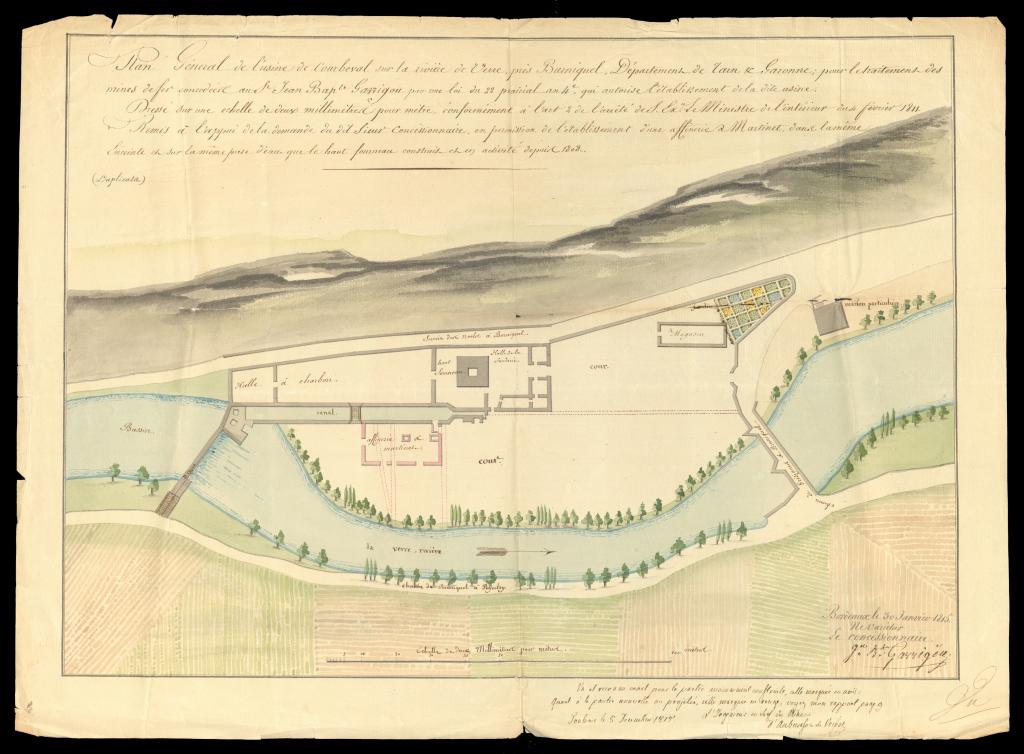 Plan Général de l'usine de Courbeval sur la rivière de Verre, près Bruniquel, Département de Tarn & Garonne; pour le traitement des
mines de fer concédées au Sr. Jean Bapte. Garrigou par une loi du 22 prairial an 4e. qui autorise l'établissement de la dite usine.
Dressé sur une echelle de deux millimètres pour metre, conformément à l'art 2 de l'arrêté de S. Exc. le Ministre de l'intérieur du 4 février 1811
Remis à l'appui de la demande du dit Sieur Concessionnaire, en permission de l'établissement d'une affinerie & Martinet, dans la même
Enceinte et sur la même prise d'eau que le haut fourneau construit et en activité depuis 1808.
(Duplicata)
maison particulière
Magasin
à Bruniquel.
Halle de la
haut
fourneau
cour
Halle
à charbon.
canal
Bassin
affinerie
à
martinet
cour
la verre, rivière
chemin de Bruniquel à
chemin de Bruniquel à
Bordeaux le 30 Janvier 1815
Ne varietur
Le concessionnaire
Jn. Bte. Garrigou
Echelle de deux Millimètres pour metre.
cent metres
Vu et reconnu exact pour la partie anciennement construite, celle marquée en noir.
Quant à la partie nouvelle ou projetée, celle marquée en rouge, voyez mon rapport
L'Ingénieur en chef des Mines